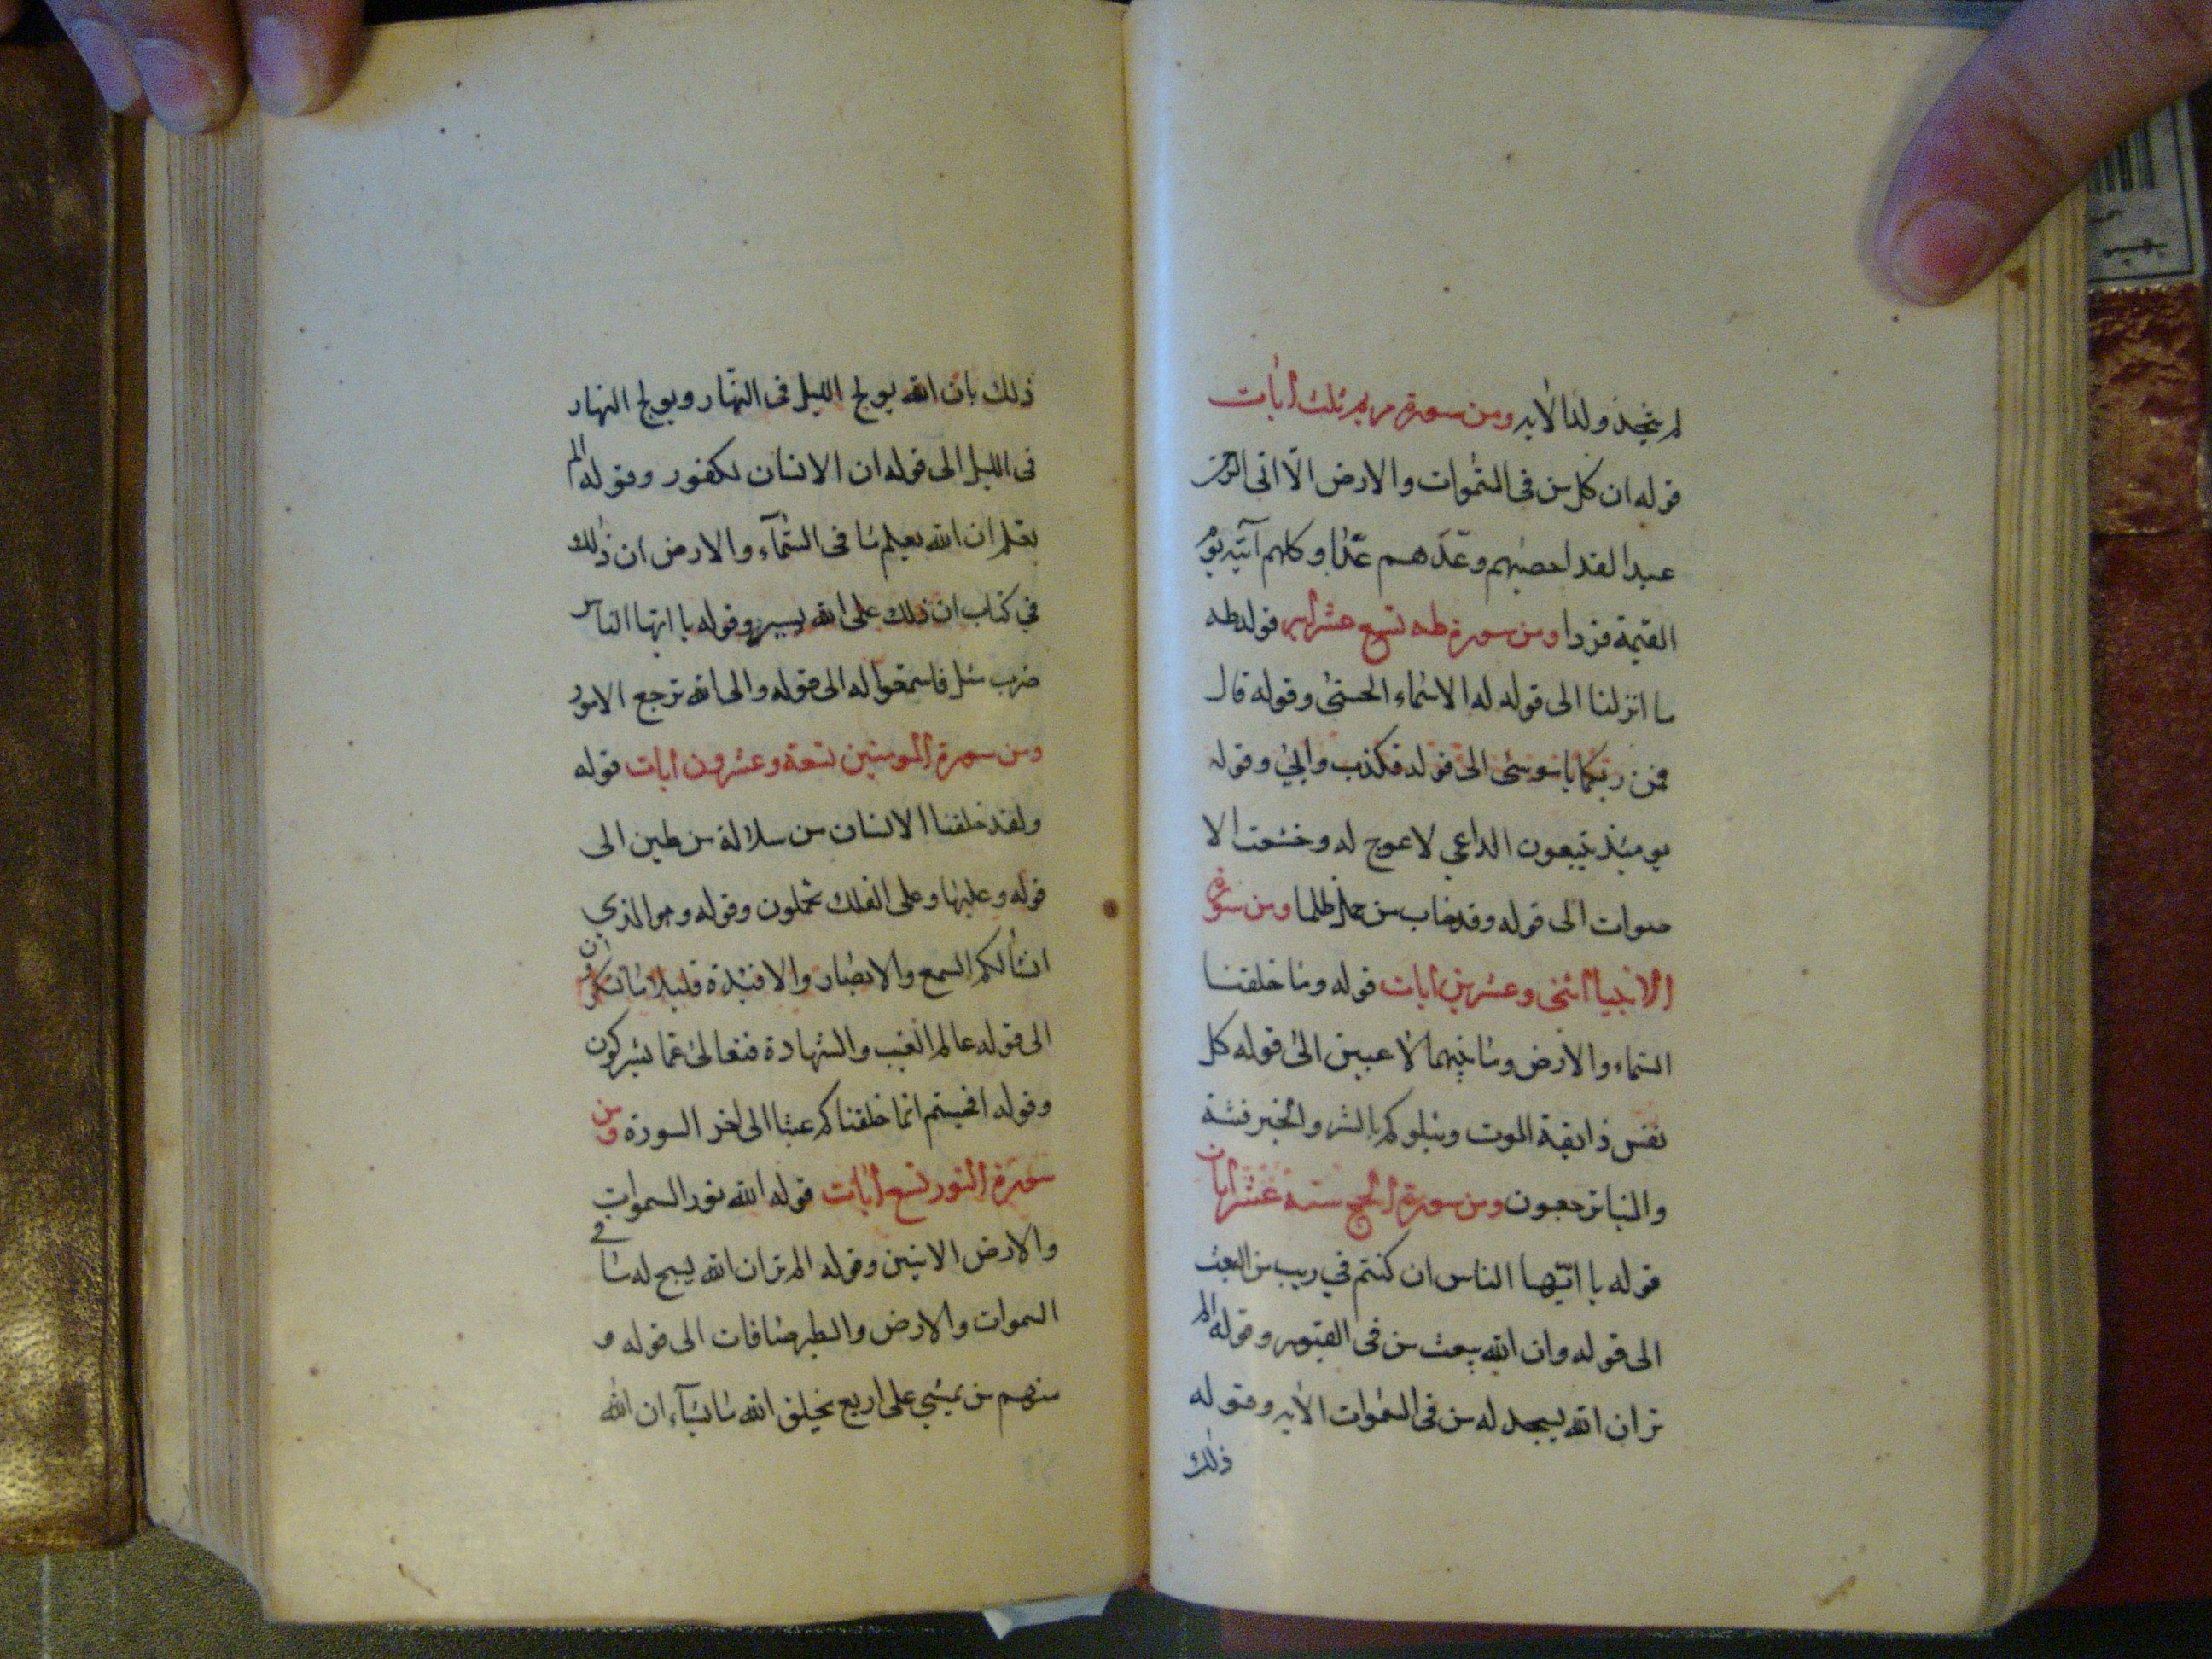 لم يتخذ ولدا الآيه ومن سورة مريم ثلث آيات
قوله ان كل من فى السموات والارض الا اتى الرحمن
عبدا لقد احصيهم وعدهم عدا وكلهم آتيه يوم
القيمة فردا ومن سورة طه تسع عشر آيه قوله طه
ما انزلنا الى قوله له الاسماء الحسنى وقوله قال
فمن ربكما يا موسى الى قوله فكذب وابى وقوله
يومئذ يتبعون الداعي لا عوج له وخشعت الا
صوات الى قوله وقد خاب من حمل ظلما ومن سورة
الانبيا اثنى وعشرين ايات قوله وما خلقنا
السماء والارض وما بينهما لاعبين الى قوله كل
نفس ذايقة الموت ونبلوكم بالشر والخير فتنة
والينا ترجعون ومن سورة الحج ستة عشر ايات
قوله يا ايها الناس ان كنتم في ريب من البعث
الى قوله وان الله يبعث من فى القبور وقوله الم
تر ان الله يسجد له من فى السموات الآيه وقوله
ذلك
ذلك بان الله يولج الليل فى النهار ويولج النهار
فى الليل الى قوله ان الانسان لكفور وقوله الم
تعلم ان الله يعلم ما فى السمآء والارض ان ذلك
في كتاب ان ذلك على الله يسير وقوله يا ايها الناس
ضرب مثل فاستمعوا له الى قوله والى الله ترجع الامور
ومن سورة المومنين تسعة وعشرون ايات قوله
ولقد خلقنا الانسان من سلالة من طين الى
قوله وعليها وعلى الفلك تحملون وقوله وهو الذي
انشأ لكم السمع والابصار والافئدة قليلا ما تشكرون
الى قوله عالم الغيب والشهادة فتعالى عما يشركون
وقوله افحسبتم انما خلقناكم عبثا الى اخر السورة ومن
سورة النور تسع آيات قوله الله نور السموات
والارض الايتين وقوله الم تر ان الله يسبح له ما في
السموات والارض والطير صافات الى قوله و
منهم من يمشي على اربع يخلق الله ما يشآء ان الله